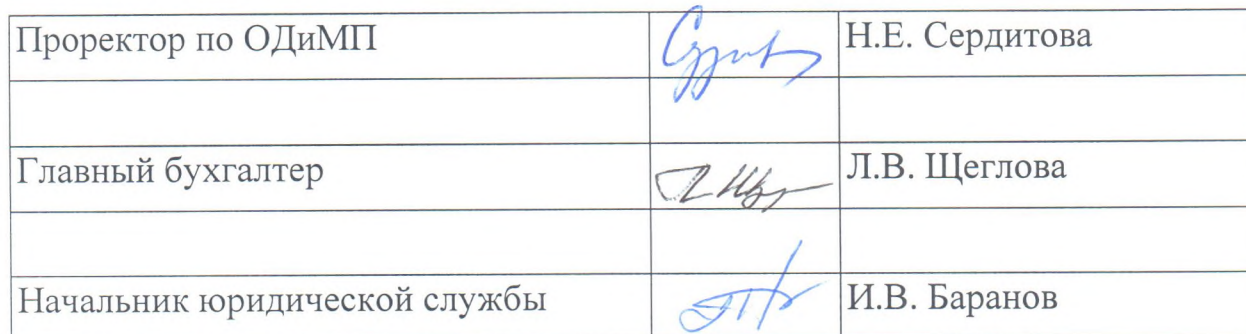 Проректор по ОДиМП Н.Е. Сердитова
Главный бухгалтер Л.В. Щеглова
Начальник юридической службы И.В. Баранов